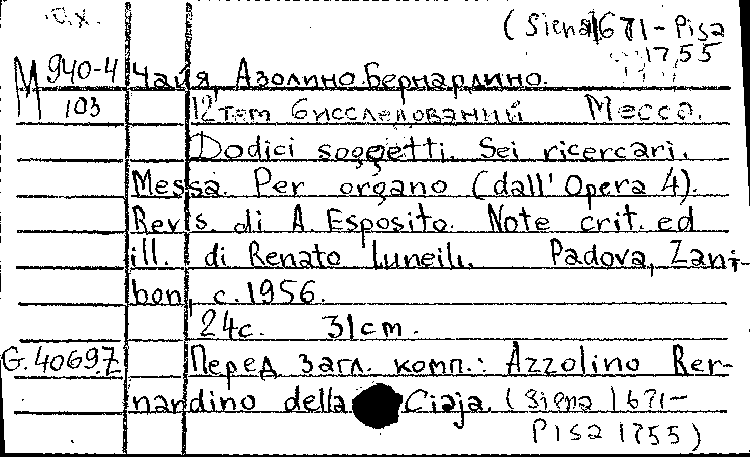 о.х.
(Siena 1671-Pisa
1755
М 940-4 Чайя, Азолино Бернардино.
103 12 тем 6 исследований Месса.
Dodici soggetti. Sei ricercari.
Messa. Per organo (dall'Opera 4).
Revis. di A. Esposito. Note crit. ed
ill. di Renato Luneili. Padova, Zani-
bon, c.1956.
24с. 31cm.
G.40697 Перед загл. комп.: Azzolino Ber-
nardino della Ciaja. (Siena 1671-
Pisa 1755)